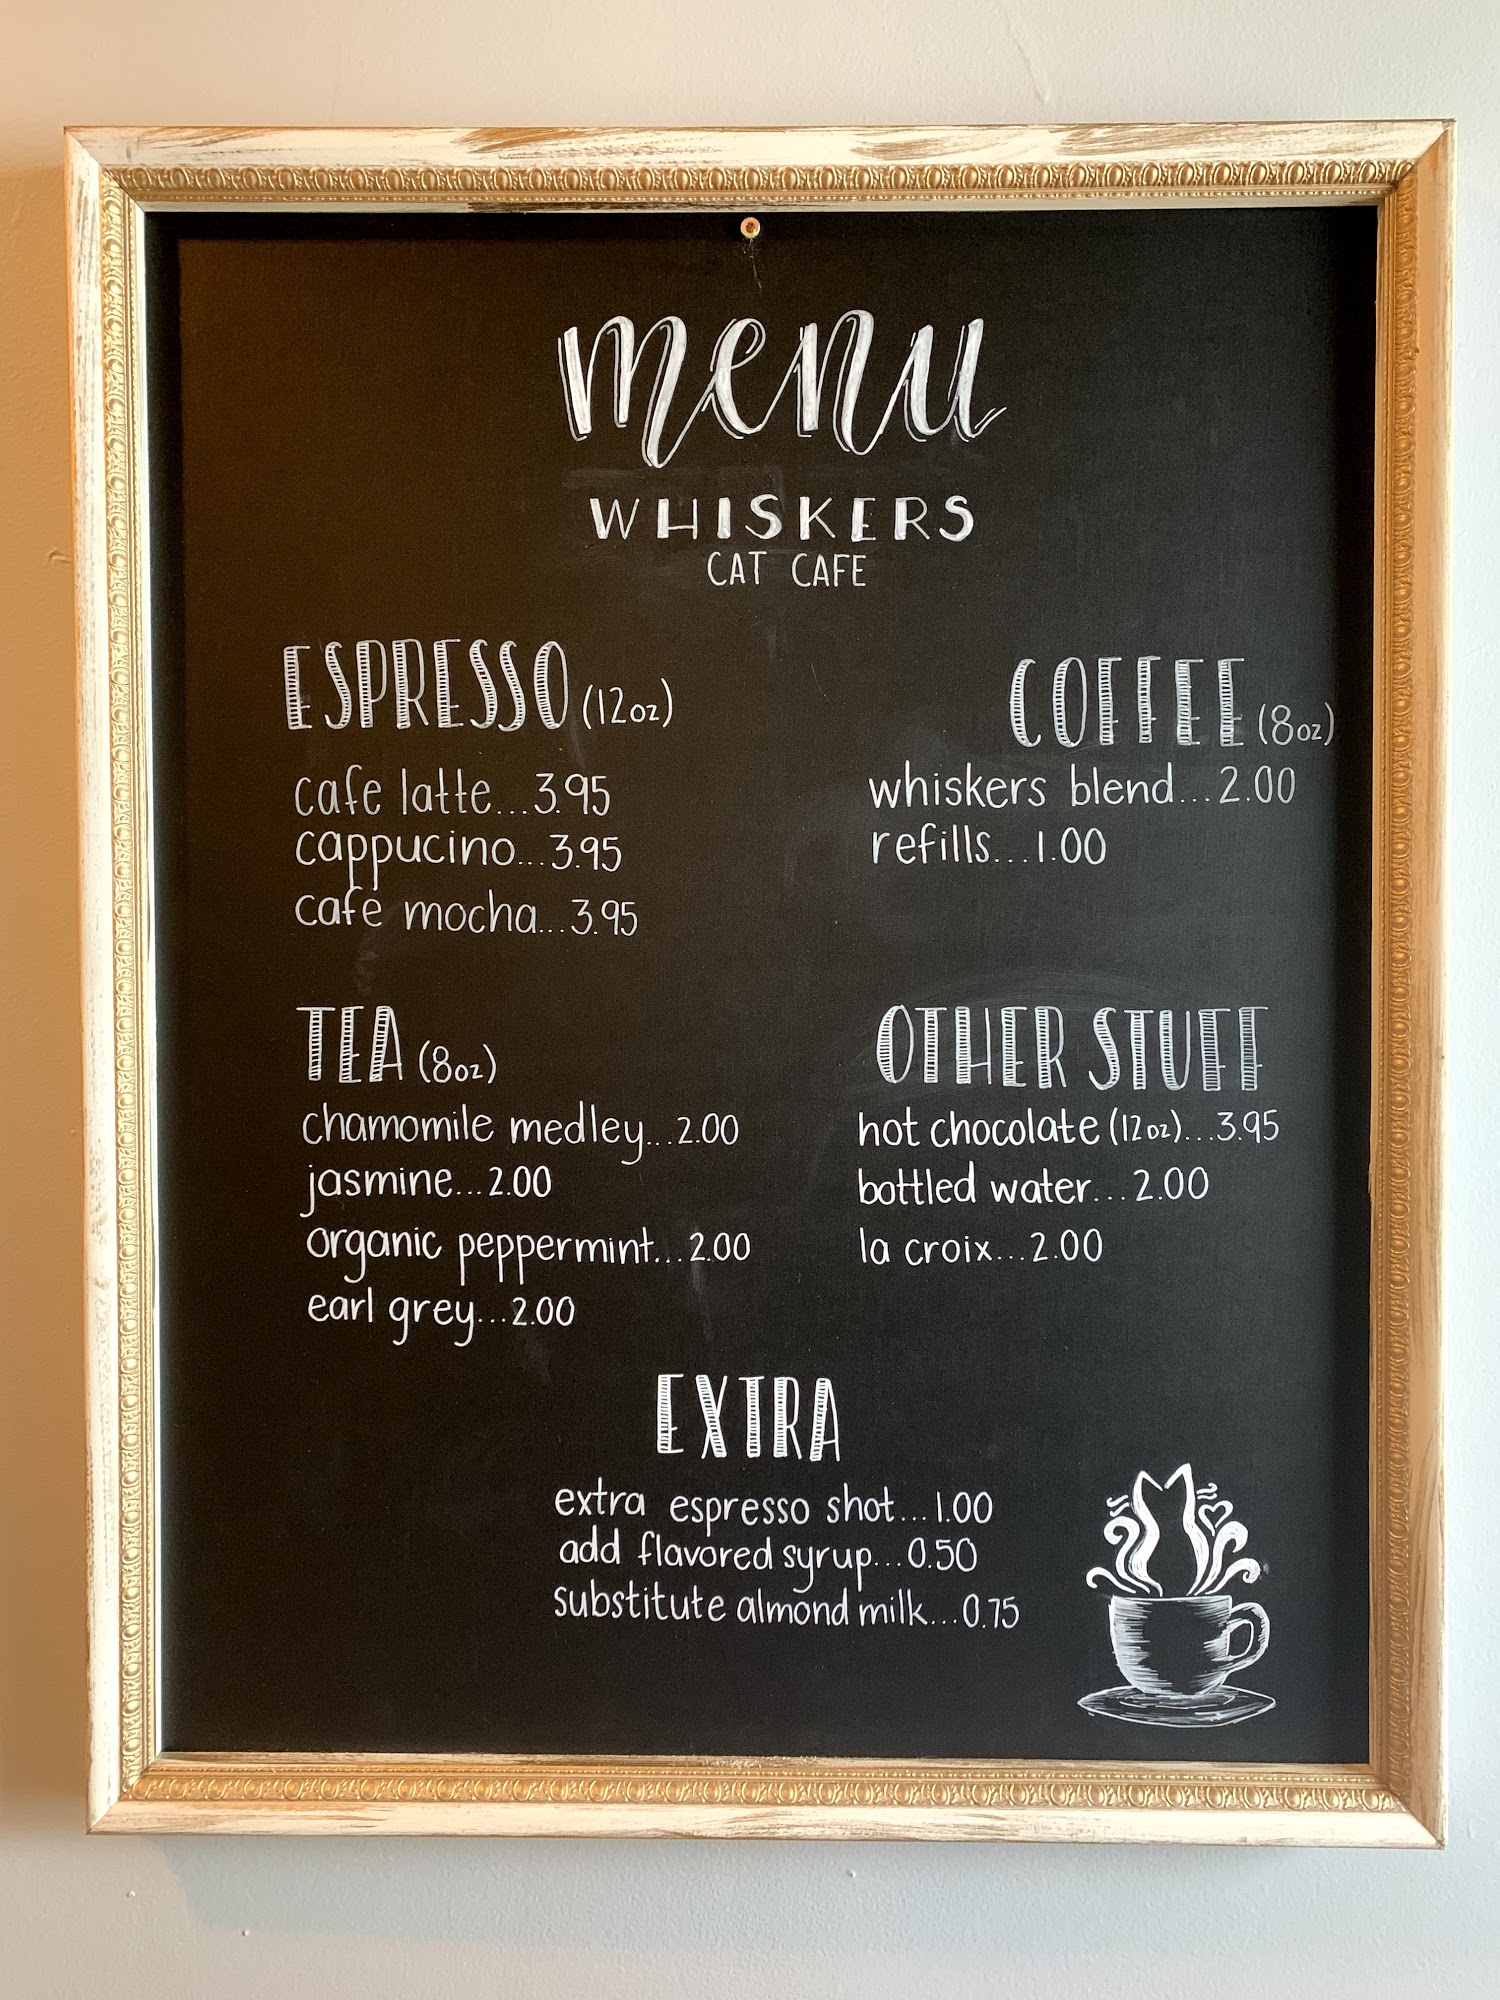 menu
WHISKERS
CAT CAFE
ESPRESSO (12oz)
cafe latte...3.95
cappucino...3.95
cafe mocha...3.95
COFFEE (8oz)
whiskers blend...2.00
refills...1.00
TEA (8oz)
chamomile medley...2.00
jasmine...2.00
organic peppermint...2.00
earl grey...2.00
OTHER STUFF
hot chocolate (12oz)...3.95
bottled water...2.00
la croix...2.00
EXTRA
extra espresso shot...1.00
add flavored syrup...0.50
substitute almond milk...0.75